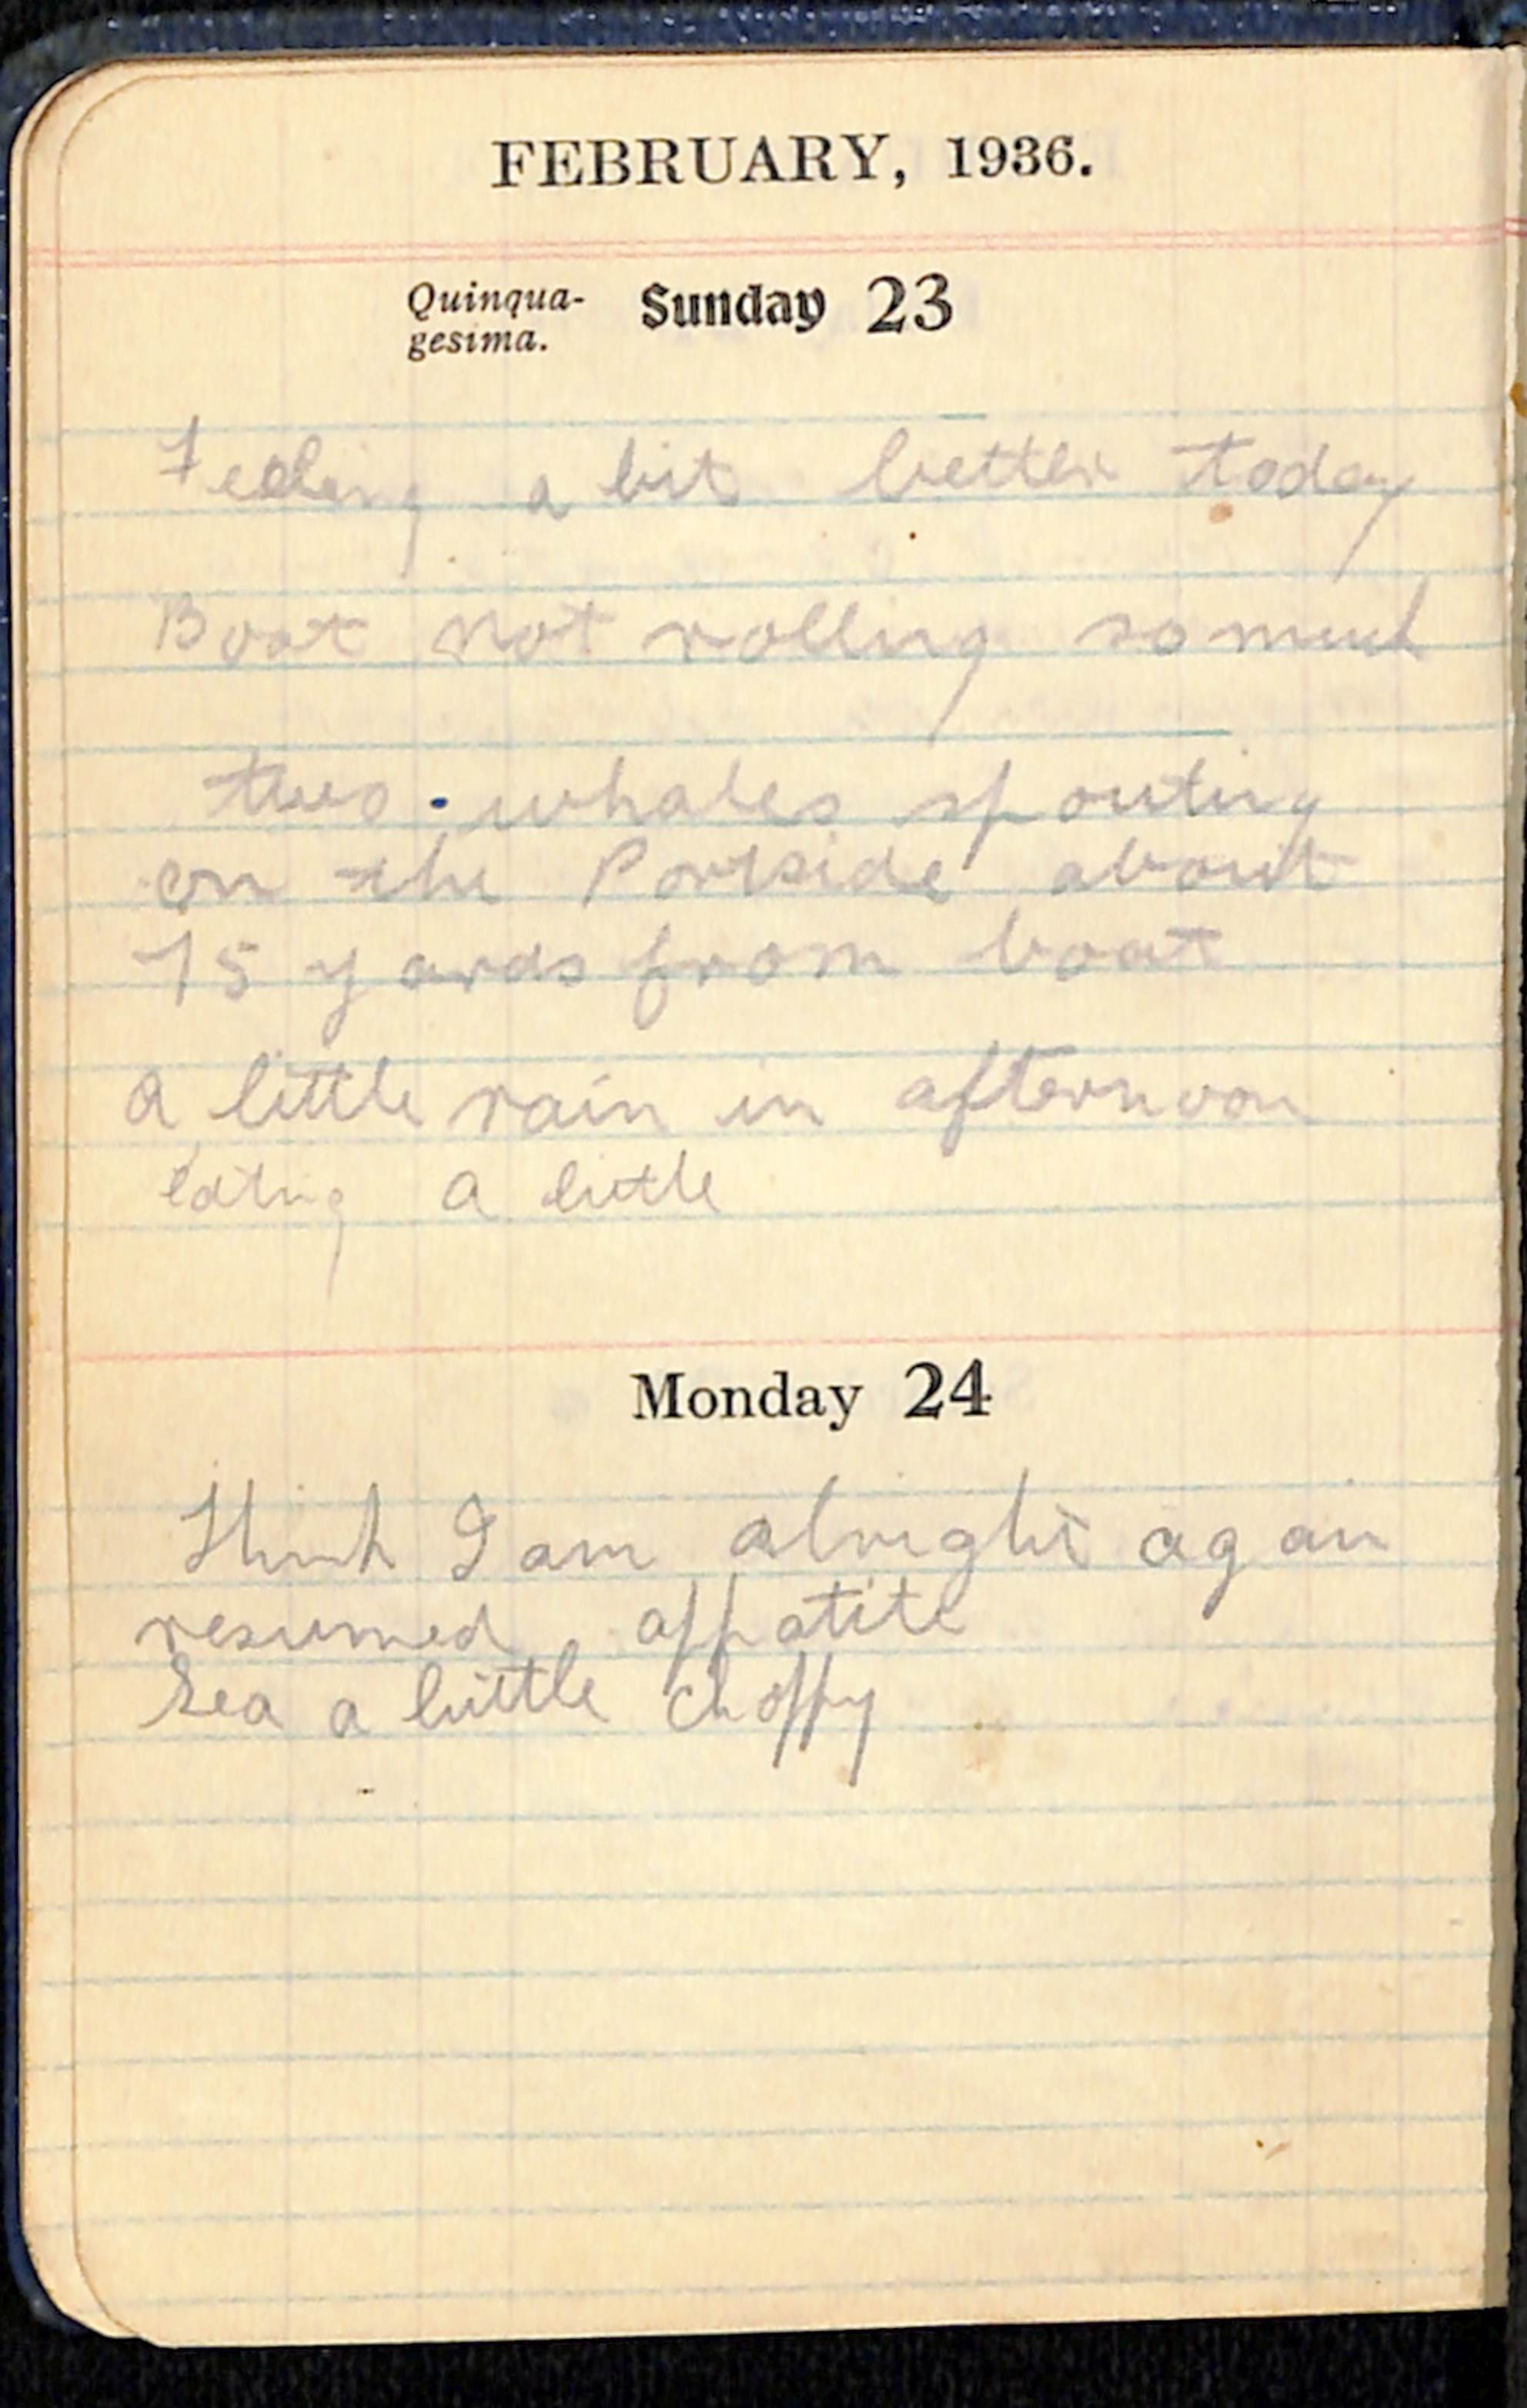 FEBRUARY, 1936.
Quinqua-
gesima. Sunday 23
Feeling a bit better today
Boat not rolling so much
two whales spouting
on the Portside about
75 yards from boat
a little rain in afternoon
eating a little
Monday 24
Think I am alright again
resumed appatite
Sea a little choppy